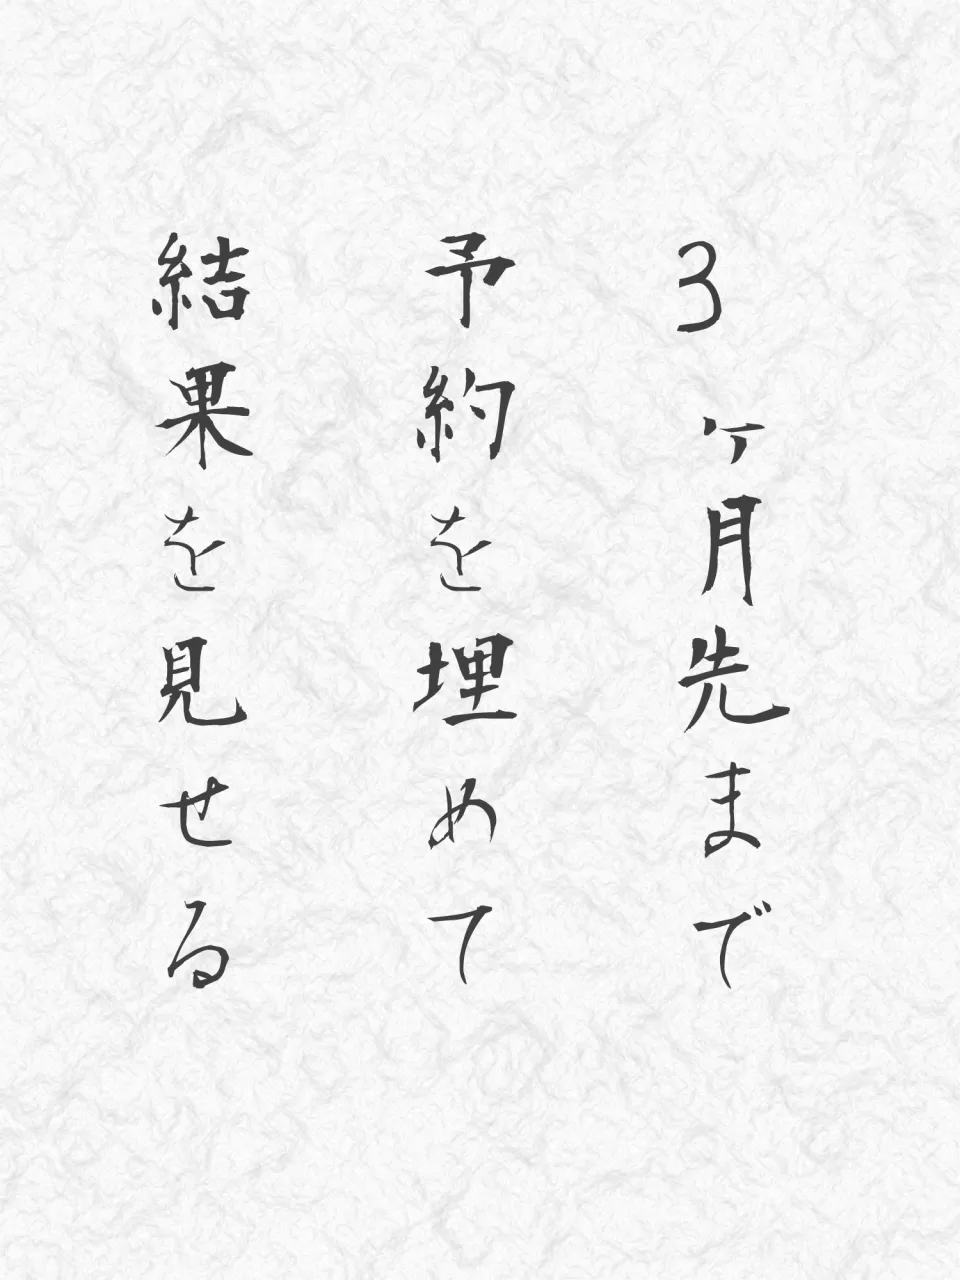 3ヶ月先まで
予約を埋めて
結果を見せる